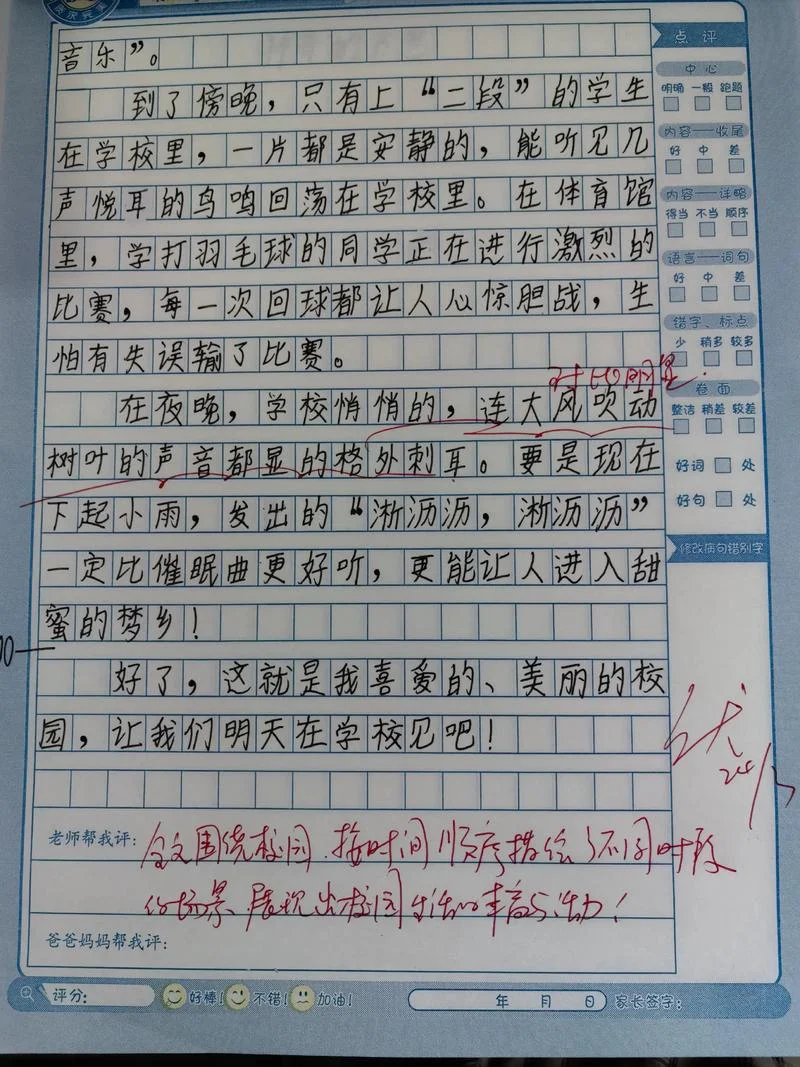 音乐”。
点评
到了傍晚，只有上“二段”的学生
中心
明确 一般 跑题
在学校里，一片都是安静的，能听见几
内容——收尾
好 中 差
声悦耳的鸟鸣回荡在学校里。在体育馆
内容——详略
得当 不当 顺序
里，学打羽毛球的同学正在进行激烈的
语言——词句
好 中 差
比赛，每一次回球都让人心惊胆战，生
错字、标点
少 稍多 较多
怕有失误输了比赛。
对比明显.
卷面
整洁 稍差 较差
在夜晚，学校悄悄的，连大风吹动
树叶的声音都显的格外刺耳。要是现在
好词 处
下起小雨，发出的“淅沥沥，淅沥沥”
好句 处
一定比催眠曲更好听，更能让人进入甜
修改病句错别字
蜜的梦乡！
好了，这就是我喜爱的、美丽的校
园，让我们明天在学校见吧！
优
老师帮我评：全文围绕校园，按时间顺序描绘了不同时段
的场景，展现出校园生活的丰富与活力！
爸爸妈妈帮我评：
评分： 好棒！ 不错！ 加油！ 年 月 日 家长签字：